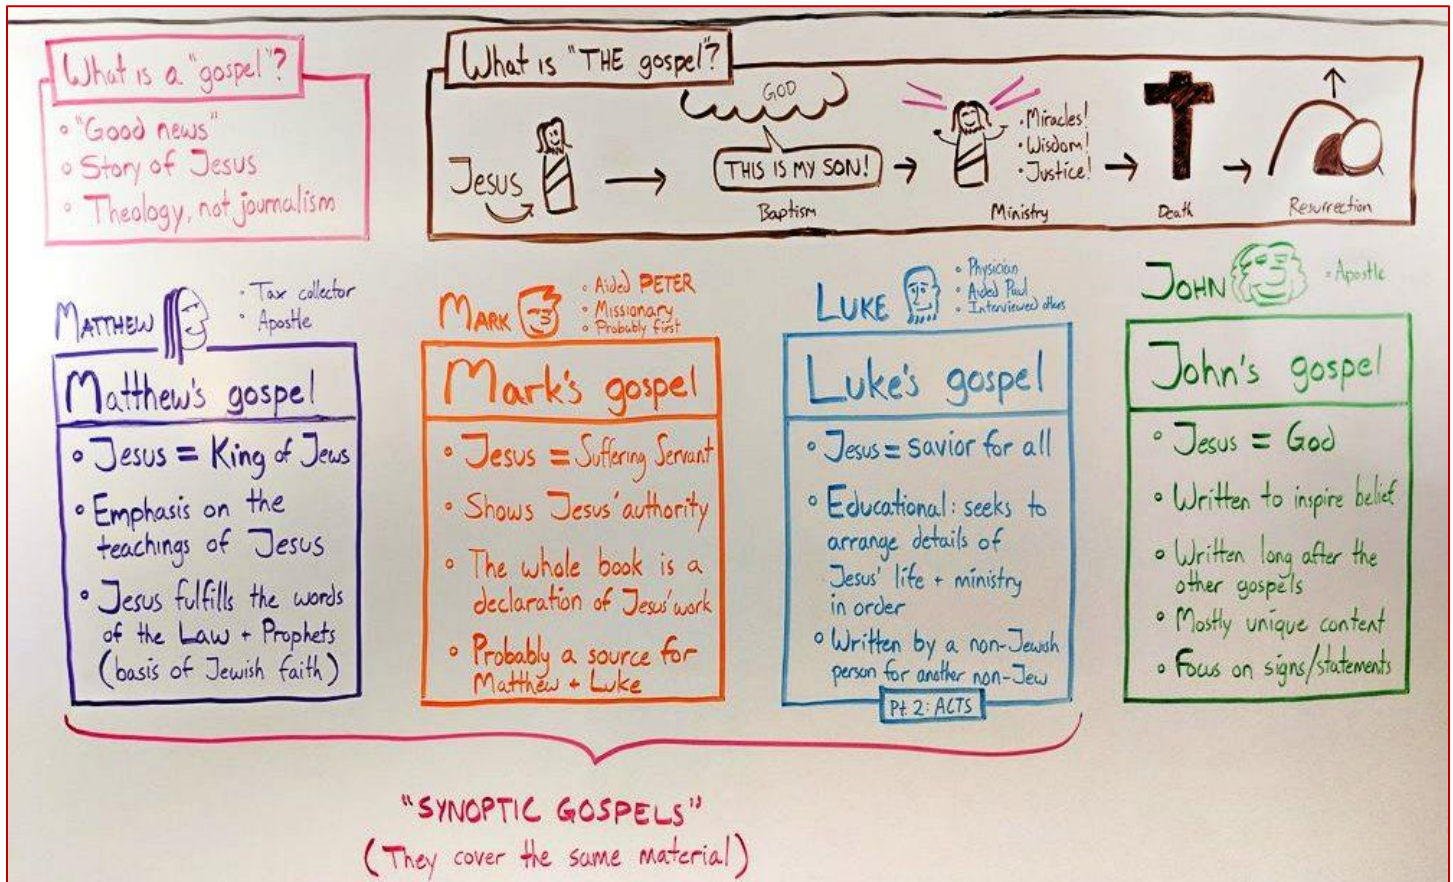 What is a "gospel"?
• "Good news"
• Story of Jesus
• Theology, not journalism
What is "THE gospel"?
Jesus
GOD
THIS IS MY SON!
Baptism
• Miracles!
• Wisdom!
• Justice!
Ministry
Death
Resurrection
MATTHEW
• Tax collector
• Apostle
Matthew's gospel
• Jesus = King of Jews
• Emphasis on the
teachings of Jesus
• Jesus fulfills the words
of the Law + Prophets
(basis of Jewish faith)
MARK
• Aided PETER
• Missionary
• Probably first
Mark's gospel
• Jesus = Suffering Servant
• Shows Jesus' authority
• The whole book is a
declaration of Jesus' work
• Probably a source for
Matthew + Luke
LUKE
• Physician
• Aided Paul
• Interviewed others
Luke's gospel
• Jesus = savior for all
• Educational: seeks to
arrange details of
Jesus' life + ministry
in order
• Written by a non-Jewish
person for another non-Jew
Pt. 2: ACTS
JOHN
• Apostle
John's gospel
• Jesus = God
• Written to inspire belief
• Written long after the
other gospels
• Mostly unique content
• Focus on signs/statements
"SYNOPTIC GOSPELS"
(They cover the same material)